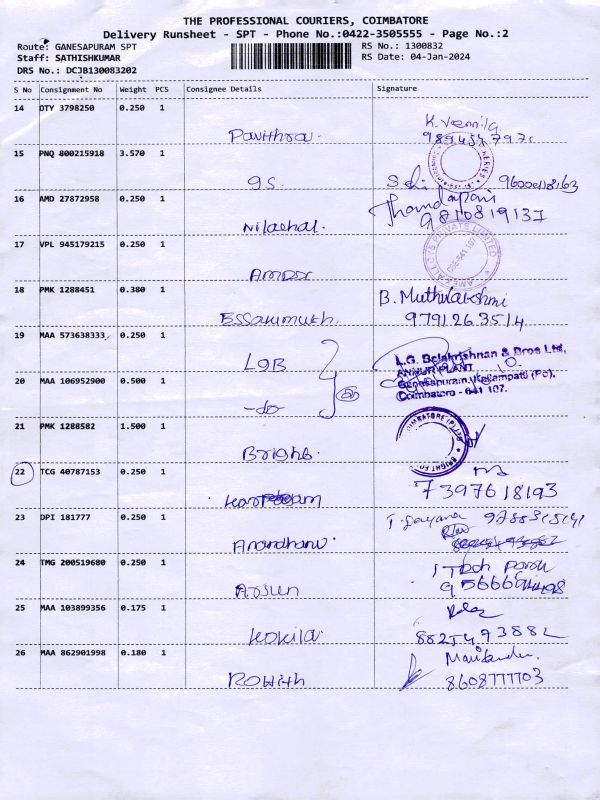 THE PROFESSIONAL COURIERS, COIMBATORE
Delivery Runsheet - SPT - Phone No.:0422-3505555 - Page No.:2
Route: GANESAPURAM SPT
RS No.: 1300832
Staff: SATHISHKUMAR
RS Date: 04-Jan-2024
DRS No.: DCJB130083202
S No Consignment No Weight PCS Consignee Details Signature
14 DTY 3798250 0.250 1
Pavithra. K. Vennila
15 PNQ 800215918 3.570 1
GS.
16 AMD 27872958 0.250 1
Nilachal. 9810819137
17 VPL 945179215 0.250 1
18 PMK 1288451 0.380 1
Essarmuth. B. Muthulakshmi
9791263514
19 MAA 573638333 0.250 1
LGB L.G. Balakrishnan & Bros Ltd,
ANNUR PLANT
20 MAA 106952900 0.500 1
-do- Ganesapuram, Kallampatti (Po),
Coimbatore - 641 107.
21 PMK 1288582 1.500 1
Bright.
22 TCG 40787153 0.250 1
7397618193
23 DPI 181777 0.250 1
24 TMG 200519680 0.250 1
Arjun
25 MAA 103899356 0.175 1
Kokila. 8825493882
26 MAA 862901998 0.180 1
Rohith 8608777703